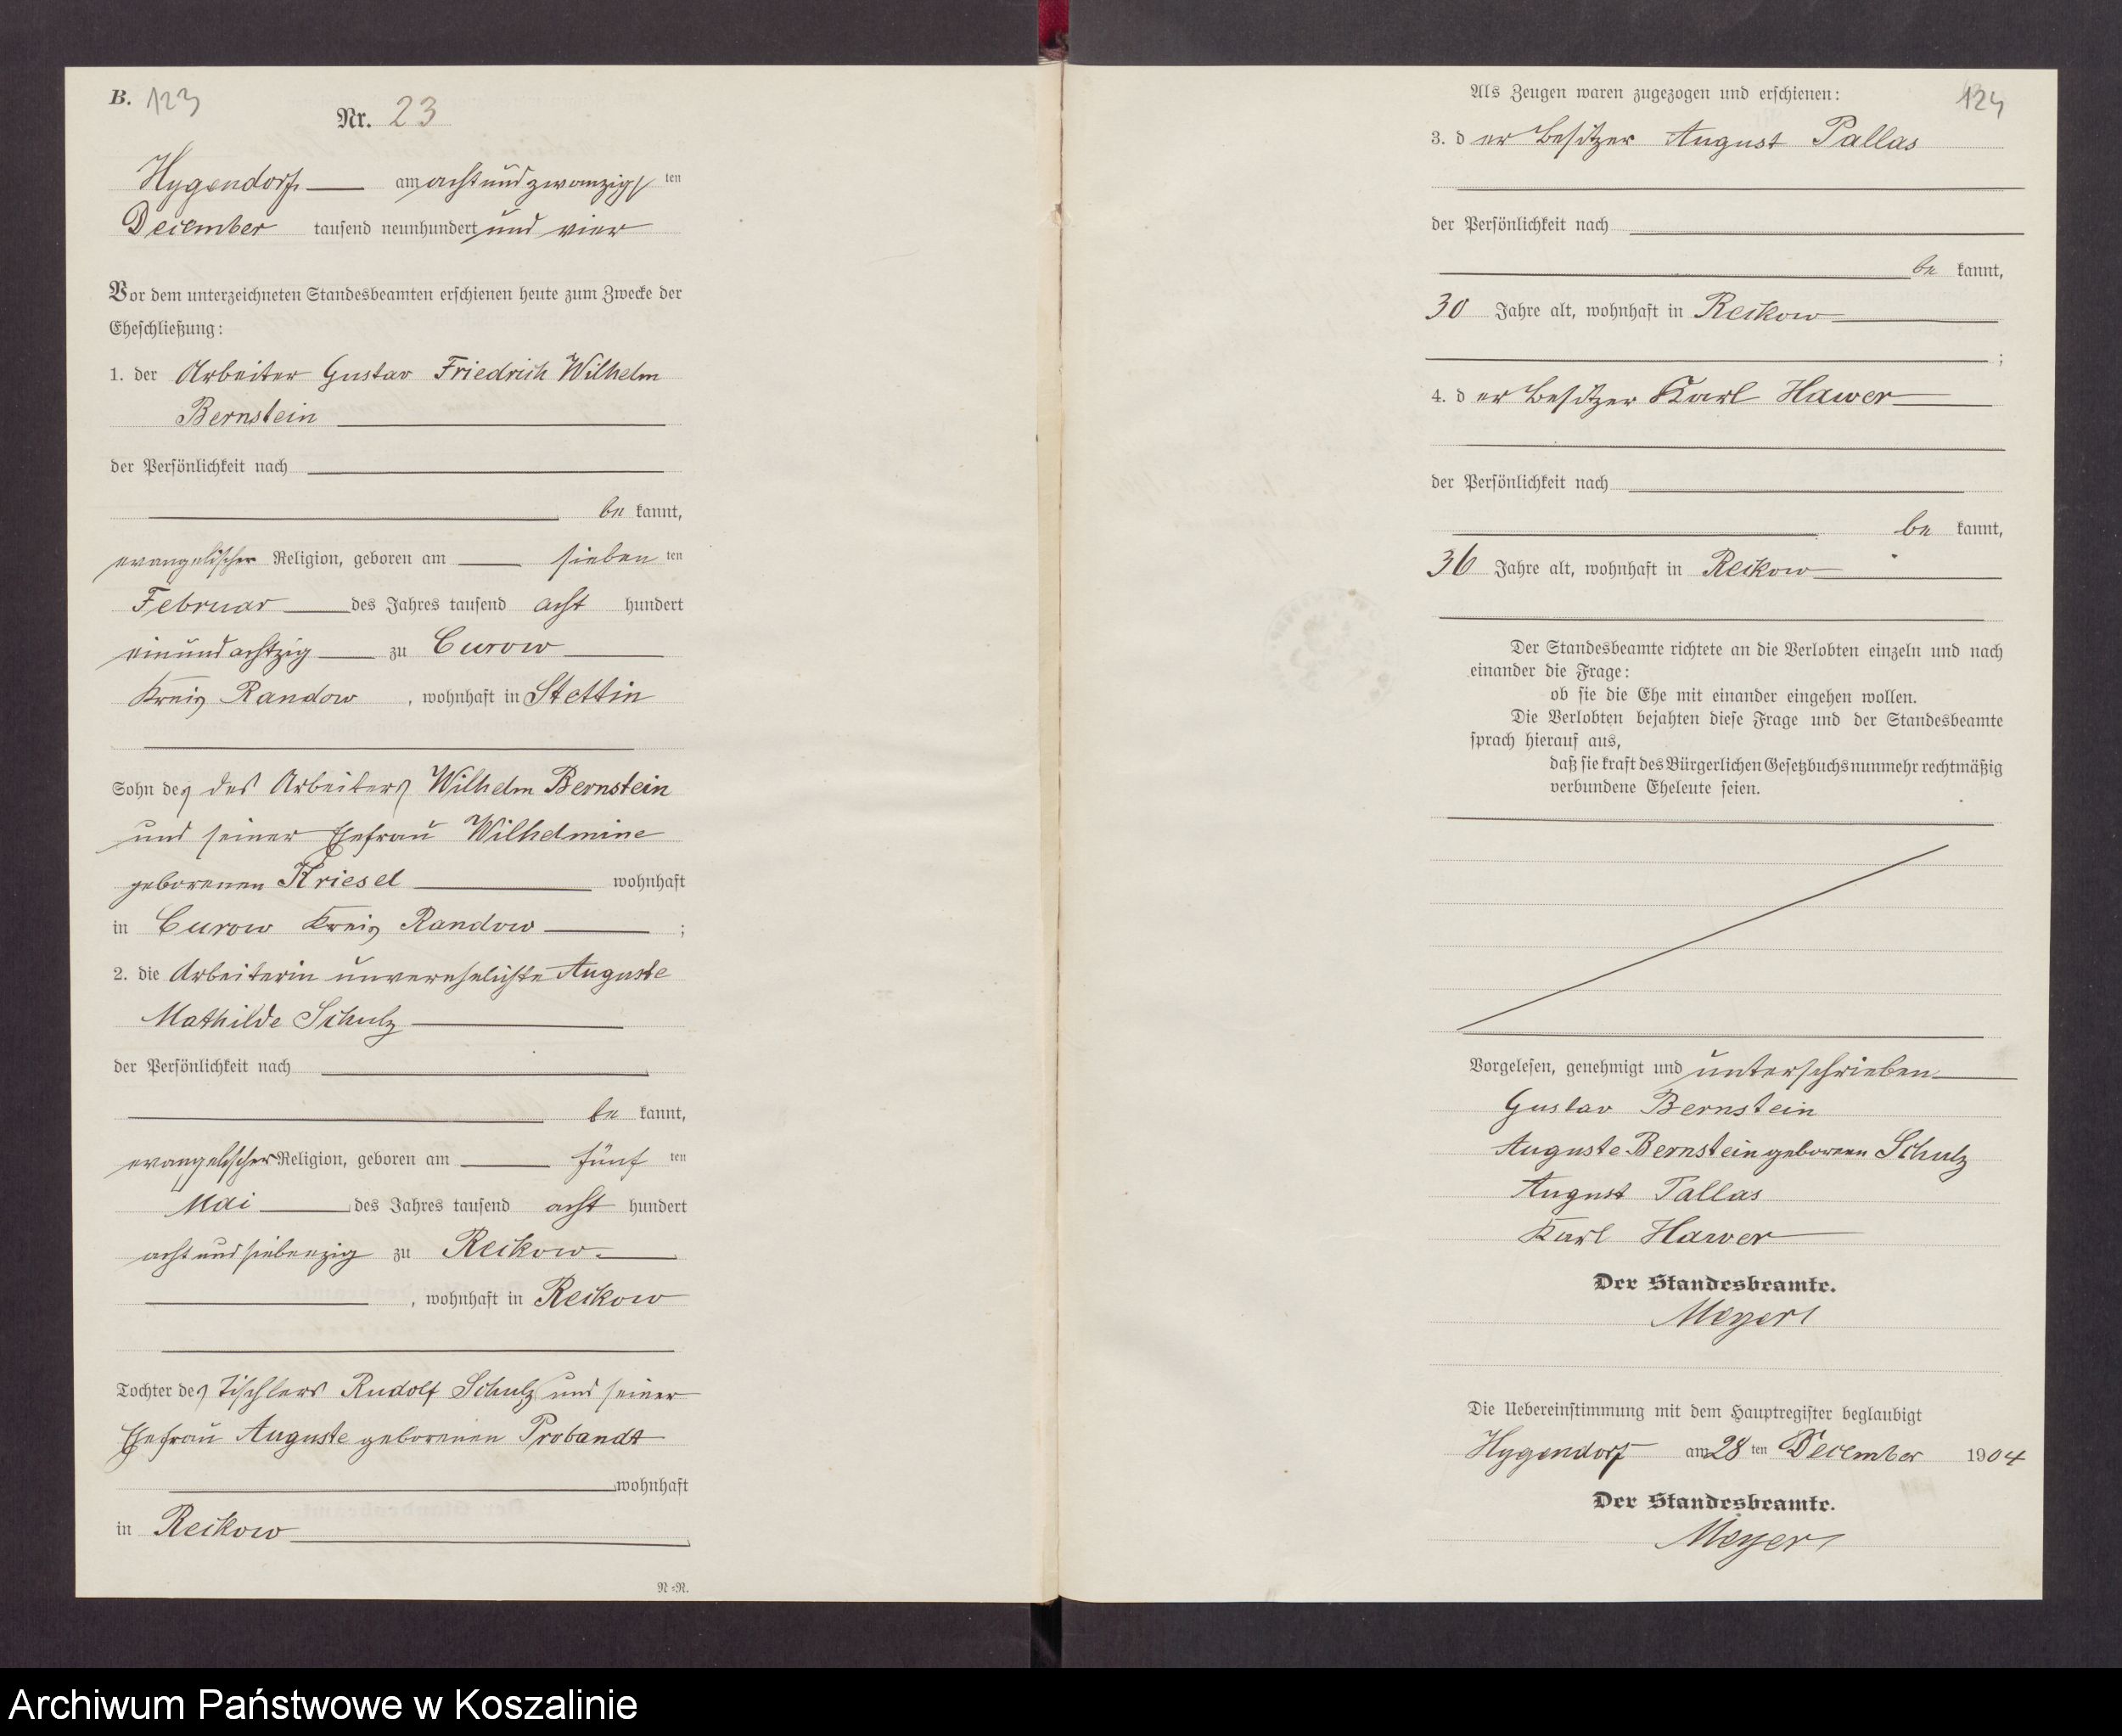 B. 123
Nr. 23
Hygendorf am achtundzwanzigsten
December tausend neunhundert und vier
Vor dem unterzeichneten Standesbeamten erschienen heute zum Zwecke der
Eheschließung:
1. der Arbeiter Gustav Friedrich Wilhelm
Bernstein
der Persönlichkeit nach
be kannt,
evangelischer Religion, geboren am sieben ten
Februar des Jahres tausend acht hundert
einundachtzig zu Curow
Kreis Randow, wohnhaft in Stettin
Sohn des des Arbeiters Wilhelm Bernstein
und seiner Ehefrau Wilhelmine
geborenen Kriesel wohnhaft
in Curow Kreis Randow ;
2. die Arbeiterin unverehelichte Auguste
Mathilde Schulz
der Persönlichkeit nach
be kannt,
evangelischer Religion, geboren am fünf ten
Mai des Jahres tausend acht hundert
achtundsiebenzig zu Reikow
, wohnhaft in Reikow
Tochter des Tischlers Rudolf Schulz und seiner
Ehefrau Auguste geborenen Probandt
wohnhaft
in Reikow
N=N.
Als Zeugen waren zugezogen und erschienen: 124
3. der Besitzer August Pallas
der Persönlichkeit nach
be kannt,
30 Jahre alt, wohnhaft in Reikow
;
4. der Besitzer Karl Hawer
der Persönlichkeit nach
be kannt,
36 Jahre alt, wohnhaft in Reikow
Der Standesbeamte richtete an die Verlobten einzeln und nach
einander die Frage:
ob sie die Ehe mit einander eingehen wollen.
Die Verlobten bejahten diese Frage und der Standesbeamte
sprach hierauf aus,
daß sie kraft des Bürgerlichen Gesetzbuchs nunmehr rechtmäßig
verbundene Eheleute seien.
Vorgelesen, genehmigt und unterschrieben
Gustav Bernstein
Auguste Bernstein geborene Schulz
August Pallas
Karl Hawer
Der Standesbeamte.
Meyer
Die Uebereinstimmung mit dem Hauptregister beglaubigt
Hygendorf am 28 ten December 1904
Der Standesbeamte.
Meyer
Archiwum Państwowe w Koszalinie